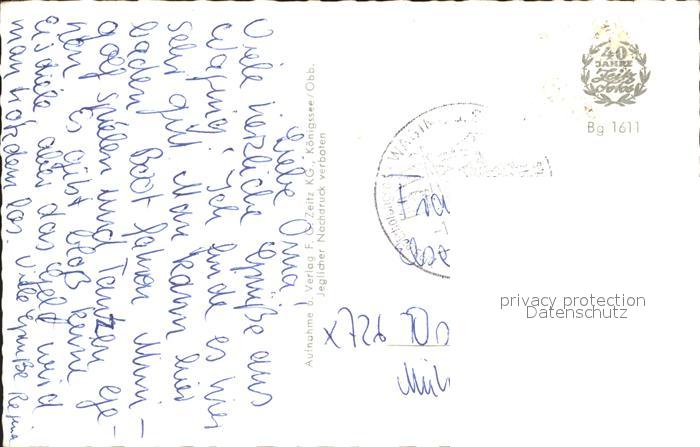 Liebe Oma!
Viele herzliche Grüße aus
Waging! Ich finde es hier
sehr gut. Man kann hier
baden, Boot fahren, Mini-
golf spielen und Tanzen ge-
hen. Es gibt bloß keine
Eisdiele aber das Geld wird
man trotzdem los. Viele Grüße Regina
Aufnahme u. Verlag F. G. Zeitz KG., Königssee/Obb.
Jeglicher Nachdruck verboten
40
JAHRE
Zeitz
Fotos
Bg 1611
WAGING
x726
privacy protection
Datenschutz